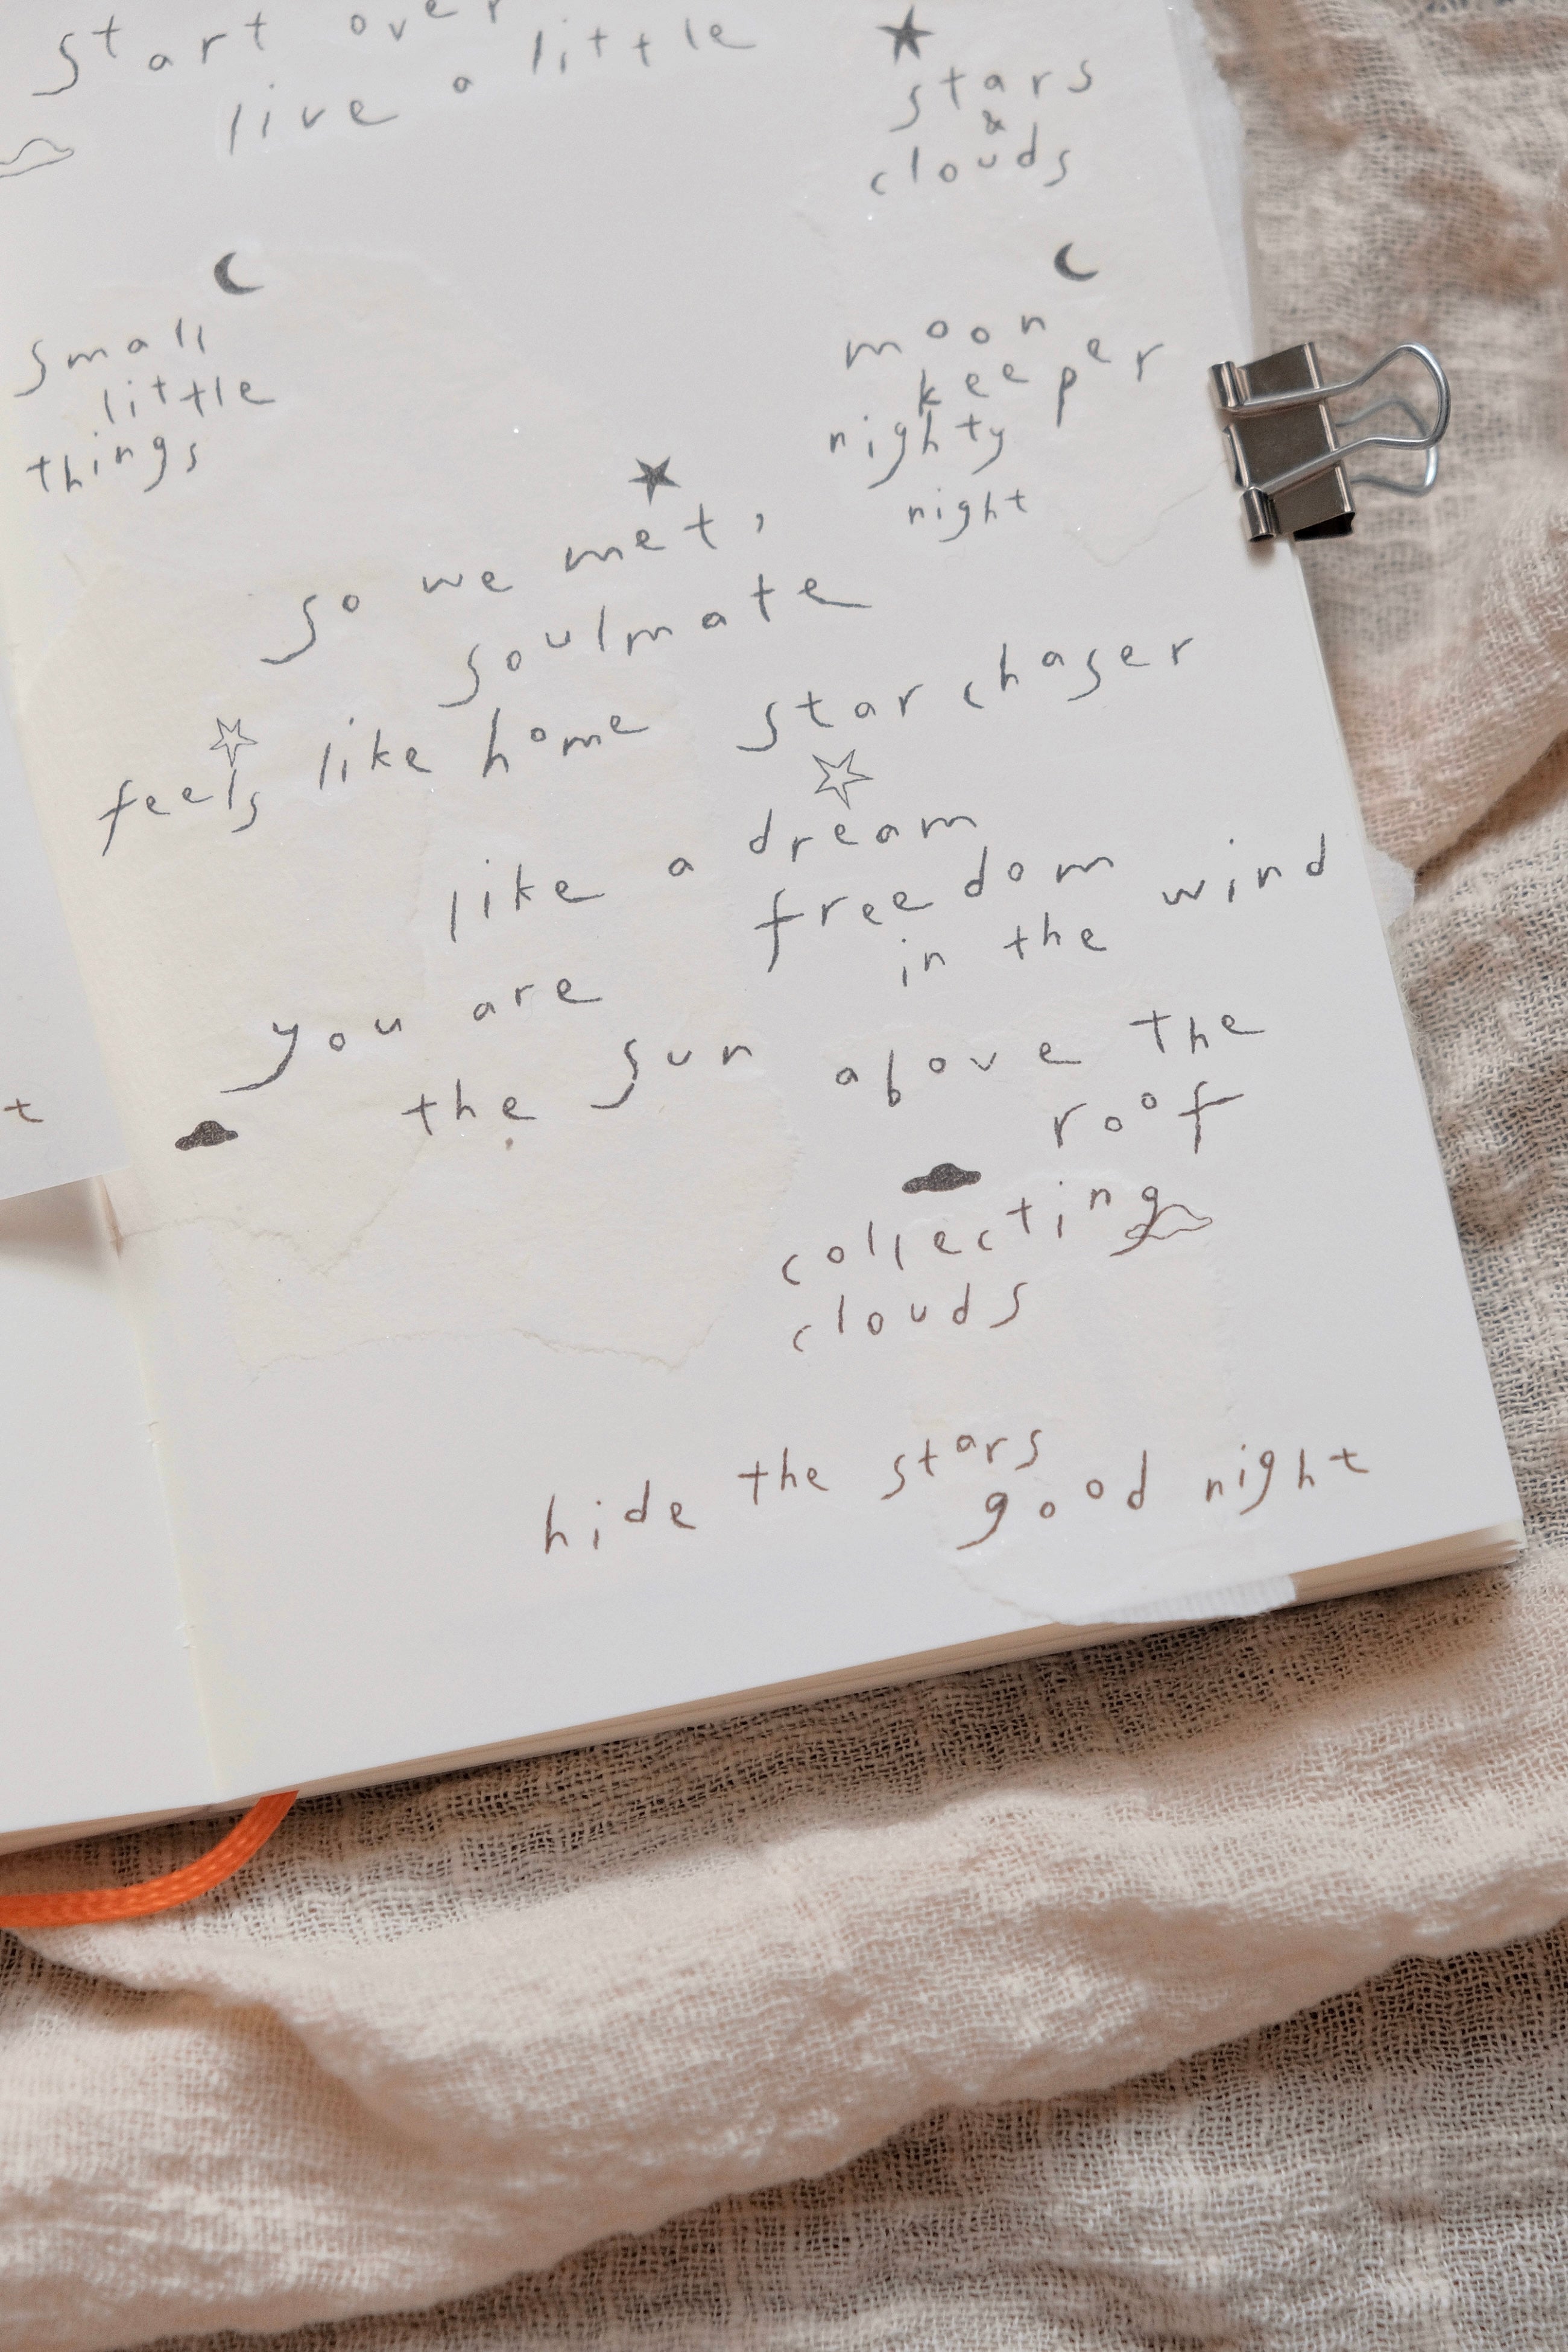 start over
live a little
stars
&
clouds
small
little
things
moon
keeper
nighty
night
so we met,
soulmate
feels like home
starchaser
like a dream
freedom
in the wind
you are
the sun
above the
roof
collecting
clouds
hide the stars
good night
t